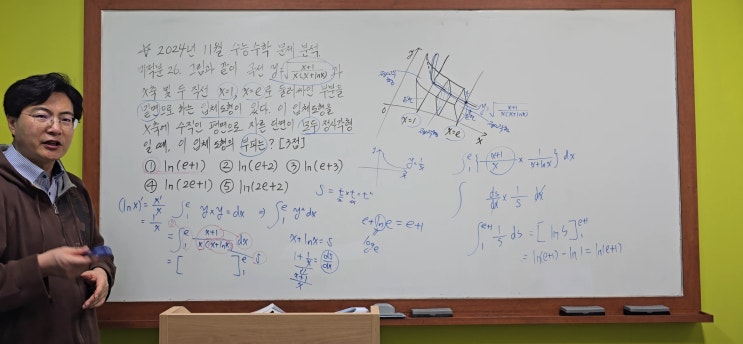 ※ 2024년 11월 수능수학 문제 분석
미적분 26. 그림과 같이 곡선 y=√((x+1)/(x(x+lnx)))과
x축 및 두 직선 x=1, x=e로 둘러싸인 부분을
밑면으로 하는 입체도형이 있다. 이 입체도형을
x축에 수직인 평면으로 자른 단면이 모두 정사각형
일 때, 이 입체도형의 부피는? [3점]
① ln(e+1) ② ln(e+2) ③ ln(e+3)
④ ln(2e+1) ⑤ ln(2e+2)
(lnx)' = x'/x
= 1/x
∫₁ᵉ y×y×dx ⇒ ∫₁ᵉ y²dx
= ∫₁ᵉ (x+1)/(x(x+lnx)) dx
= [ ]₁ᵉ
x+lnx=S
1+1/x = ds/dx
(x+1)/x
e+lne = e+1
y
0
x=1
x=e
x
y=√((x+1)/(x(x+lnx)))
y=1/x
∫₁ᵉ {(x+1)/x × 1/(x+lnx)} dx
∫ ds/dx × 1/S dx
∫₁ᵉ⁺¹ 1/S ds = [lnS]₁ᵉ⁺¹
= ln(e+1) - ln1 = ln(e+1)